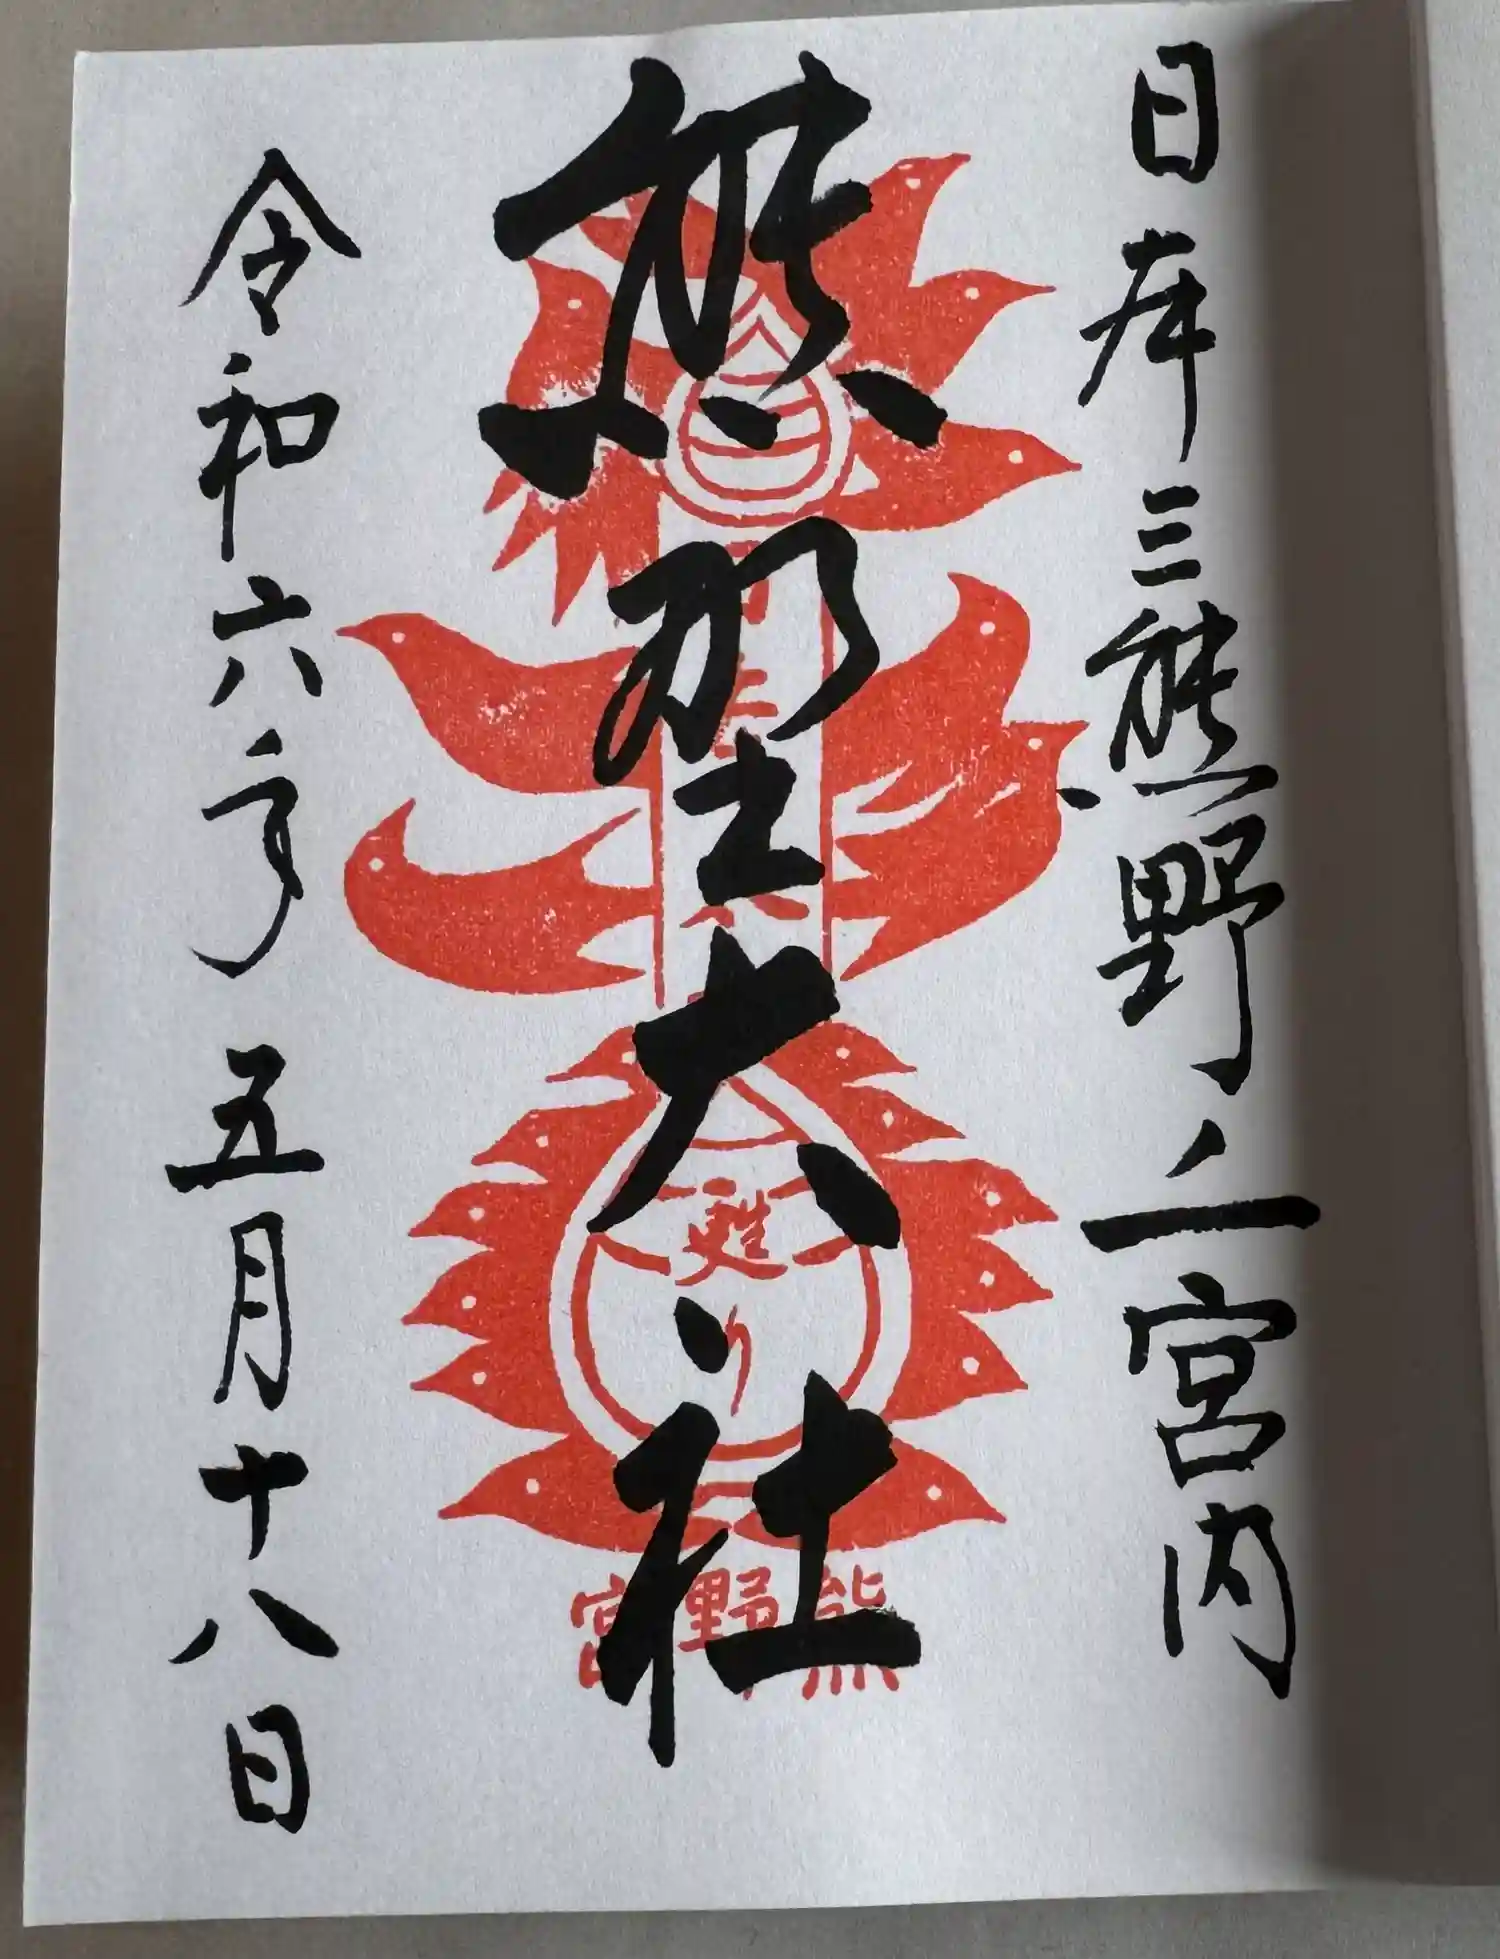 日本三熊野ノ一宮内
熊野大社
令和六年五月十八日
甦り
熊野宮